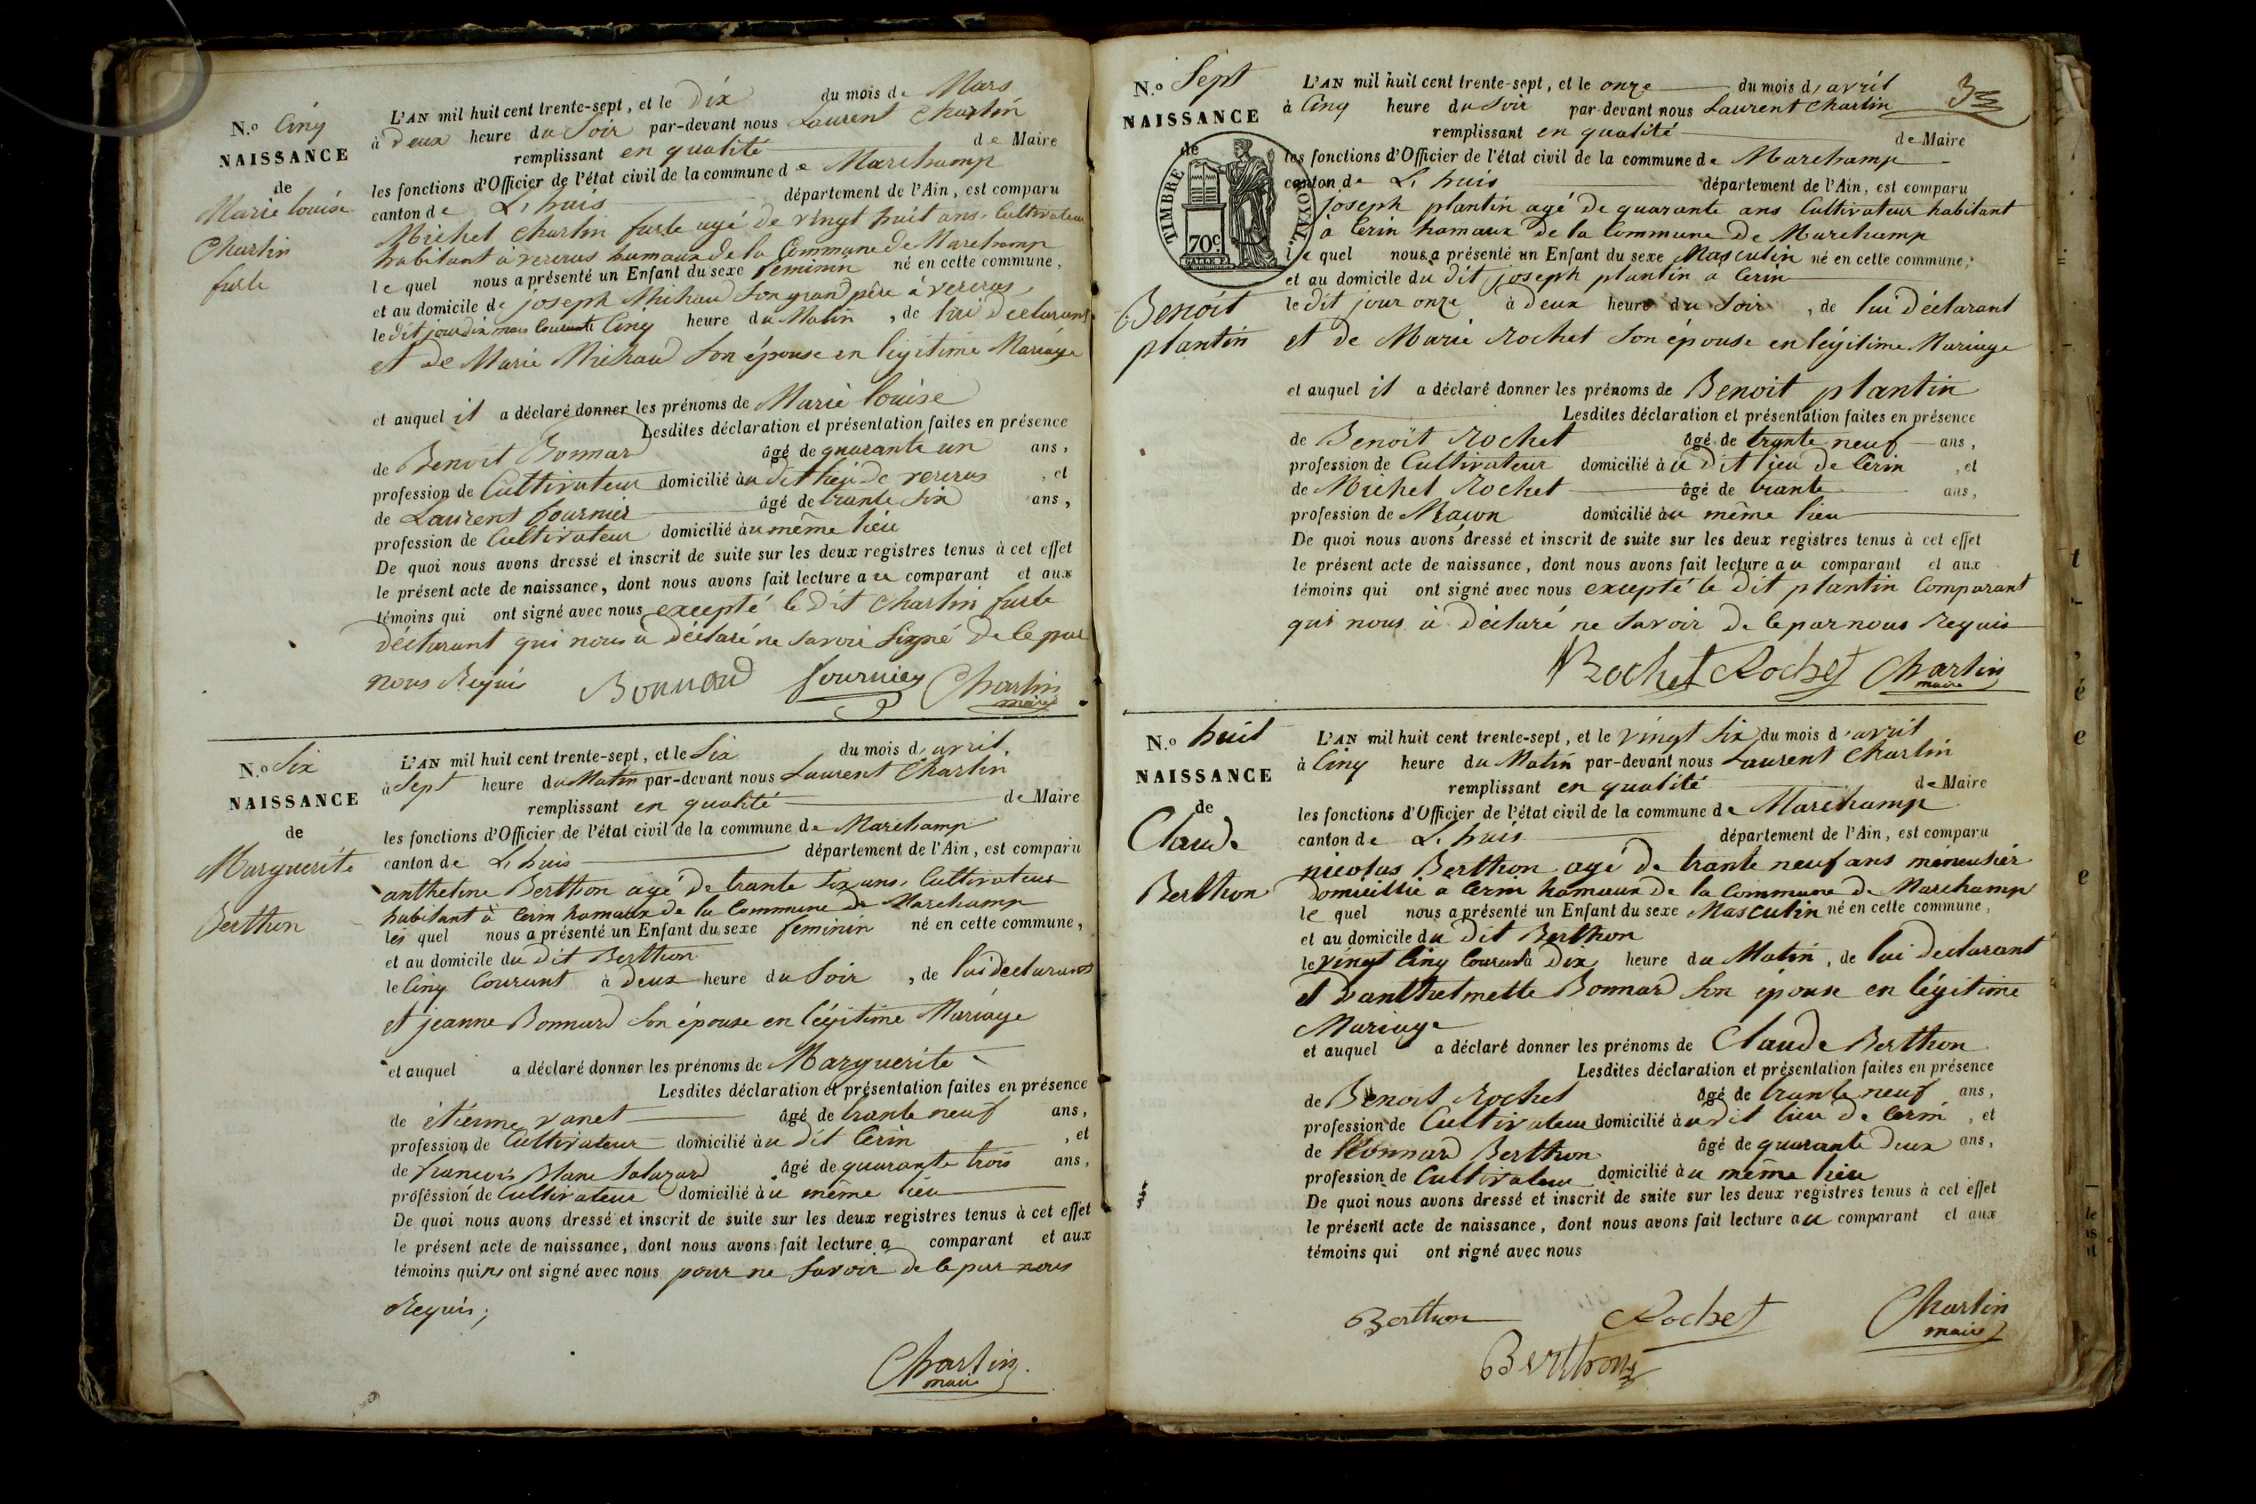 N.o Cinq
NAISSANCE
de
Marie louise
Charlin
furle
L'AN mil huit cent trente-sept, et le Dix du mois de Mars
à Deux heure du Soir par-devant nous Laurent Charlin
remplissant en qualité de Maire
les fonctions d'Officier de l'état civil de la commune de Marchamp
canton de L'huis département de l'Ain, est comparu
Michel Charlin furle agé de vingt huit ans, Cultivateur
habitant à vereras hamaux de la Commune de Marchamp
le quel nous a présenté un Enfant du sexe feminin né en cette commune,
et au domicile de joseph Michaud Son grand père à vereras
le dit jour dix mars Courant Cinq heure du Matin, de lui declarant
et de Marie Michaud Son épouse en légitime Mariage
et auquel il a déclaré donner les prénoms de Marie louise
Lesdites déclaration et présentation faites en présence
de Benoit Bonnard âgé de quarante un ans,
profession de Cultivateur domicilié au dit lieu de vereras, et
de Laurent fournier âgé de trante Six ans,
profession de Cultivateur domicilié au même lieu
De quoi nous avons dressé et inscrit de suite sur les deux registres tenus à cet effet
le présent acte de naissance, dont nous avons fait lecture au comparant et aux
témoins qui ont signé avec nous excepté le dit Charlin furle
déclarant qui nous a déclaré ne Savoir Signé De le par
nous Réquis Bonnard fournier Charlin
maire
N.o Six
NAISSANCE
de
Marguerite
Berthon
L'AN mil huit cent trente-sept, et le Six du mois d'avril,
à Sept heure du Matin par-devant nous Laurent Charlin
remplissant en qualité de Maire
les fonctions d'Officier de l'état civil de la commune de Marchamp
canton de L'huis département de l'Ain, est comparu
anthelme Berthon agé De trante Six ans, Cultivateur
habitant à Cerin hamaux de la Commune de Marchamp
le quel nous a présenté un Enfant du sexe feminin né en cette commune,
et au domicile du Dit Berthon
le Cinq Courant à Deux heure du Soir, de lui declarant
et jeanne Bonnard Son épouse en légitime Mariage
et auquel a déclaré donner les prénoms de Marguerite
Lesdites déclaration et présentation faites en présence
de étienne vanet âgé de trante neuf ans,
profession de Cultivateur domicilié au dit Cerin, et
de francois Blanc Salazard âgé de quarante trois ans,
profession de Cultivateur domicilié au même lieu
De quoi nous avons dressé et inscrit de suite sur les deux registres tenus à cet effet
le présent acte de naissance, dont nous avons fait lecture a comparant et aux
témoins qui ns ont signé avec nous pour ne Savoir De le par nous
Requis;
Charlin
maire
3
N.o Sept
NAISSANCE
de
TIMBRE ROYAL
70c
Benoit
plantin
L'AN mil huit cent trente-sept, et le onze du mois d'avril
à Cinq heure du Soir par-devant nous Laurent Charlin
remplissant en qualité de Maire
les fonctions d'Officier de l'état civil de la commune de Marchamp
canton de L'huis département de l'Ain, est comparu
joseph plantin agé De quarante ans Cultivateur habitant
à Cerin hamaux De la Commune De Marchamp
le quel nous a présenté un Enfant du sexe Masculin né en cette commune,
et au domicile du dit joseph plantin a Cerin
le dit jour onze à deux heure du Soir, de lui déclarant
et de Marie Rochet Son épouse en légitime Mariage
et auquel il a déclaré donner les prénoms de Benoit plantin
Lesdites déclaration et présentation faites en présence
de Benoit Rochet âgé de trante neuf ans,
profession de Cultivateur domicilié au dit lieu de Cerin, et
de Michel Rochet âgé de trante ans,
profession de Maçon domicilié au même lieu
De quoi nous avons dressé et inscrit de suite sur les deux registres tenus à cet effet
le présent acte de naissance, dont nous avons fait lecture au comparant et aux
témoins qui ont signé avec nous excepté le dit plantin Comparant
qui nous a déclaré ne Savoir De le par nous Requis
Rochet Rochet Charlin
maire
N.o huit
NAISSANCE
de
Claude
Berthon
L'AN mil huit cent trente-sept, et le vingt Six du mois d'avril
à Cinq heure du Matin par-devant nous Laurent Charlin
remplissant en qualité de Maire
les fonctions d'Officier de l'état civil de la commune de Marchamp
canton de L'huis département de l'Ain, est comparu
nicolas Berthon agé De trante neuf ans meneusier
domicillié a Cerin hamaux de la Commune De Marchamp
le quel nous a présenté un Enfant du sexe Masculin né en cette commune,
et au domicile du Dit Berthon
le vingt Cinq Courant à Dix heure du Matin, de lui declarant
et D'anthelmette Bonnard Son épouse en légitime
Mariage
et auquel a déclaré donner les prénoms de Claude Berthon
Lesdites déclaration et présentation faites en présence
de Benoit Rochet âgé de trante neuf ans,
profession de Cultivateur domicilié au dit lieu De Cerin, et
de léonnard Berthon âgé de quarante Deux ans,
profession de Cultivateur domicilié au même lieu
De quoi nous avons dressé et inscrit de suite sur les deux registres tenus à cet effet
le présent acte de naissance, dont nous avons fait lecture au comparant et aux
témoins qui ont signé avec nous
Berthon Rochet Charlin
maire
Berthon